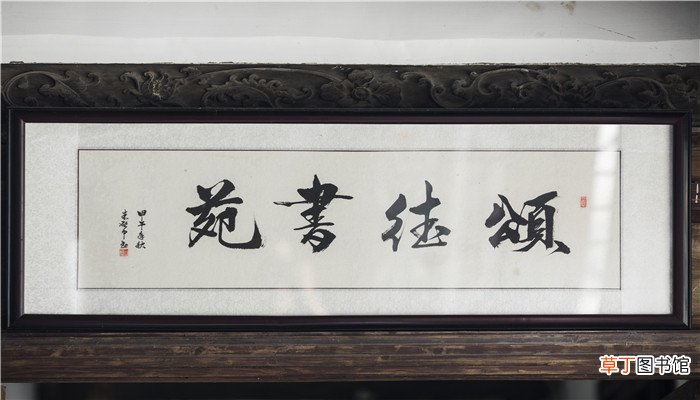 頌德書苑
甲午年秋
草丁图书馆